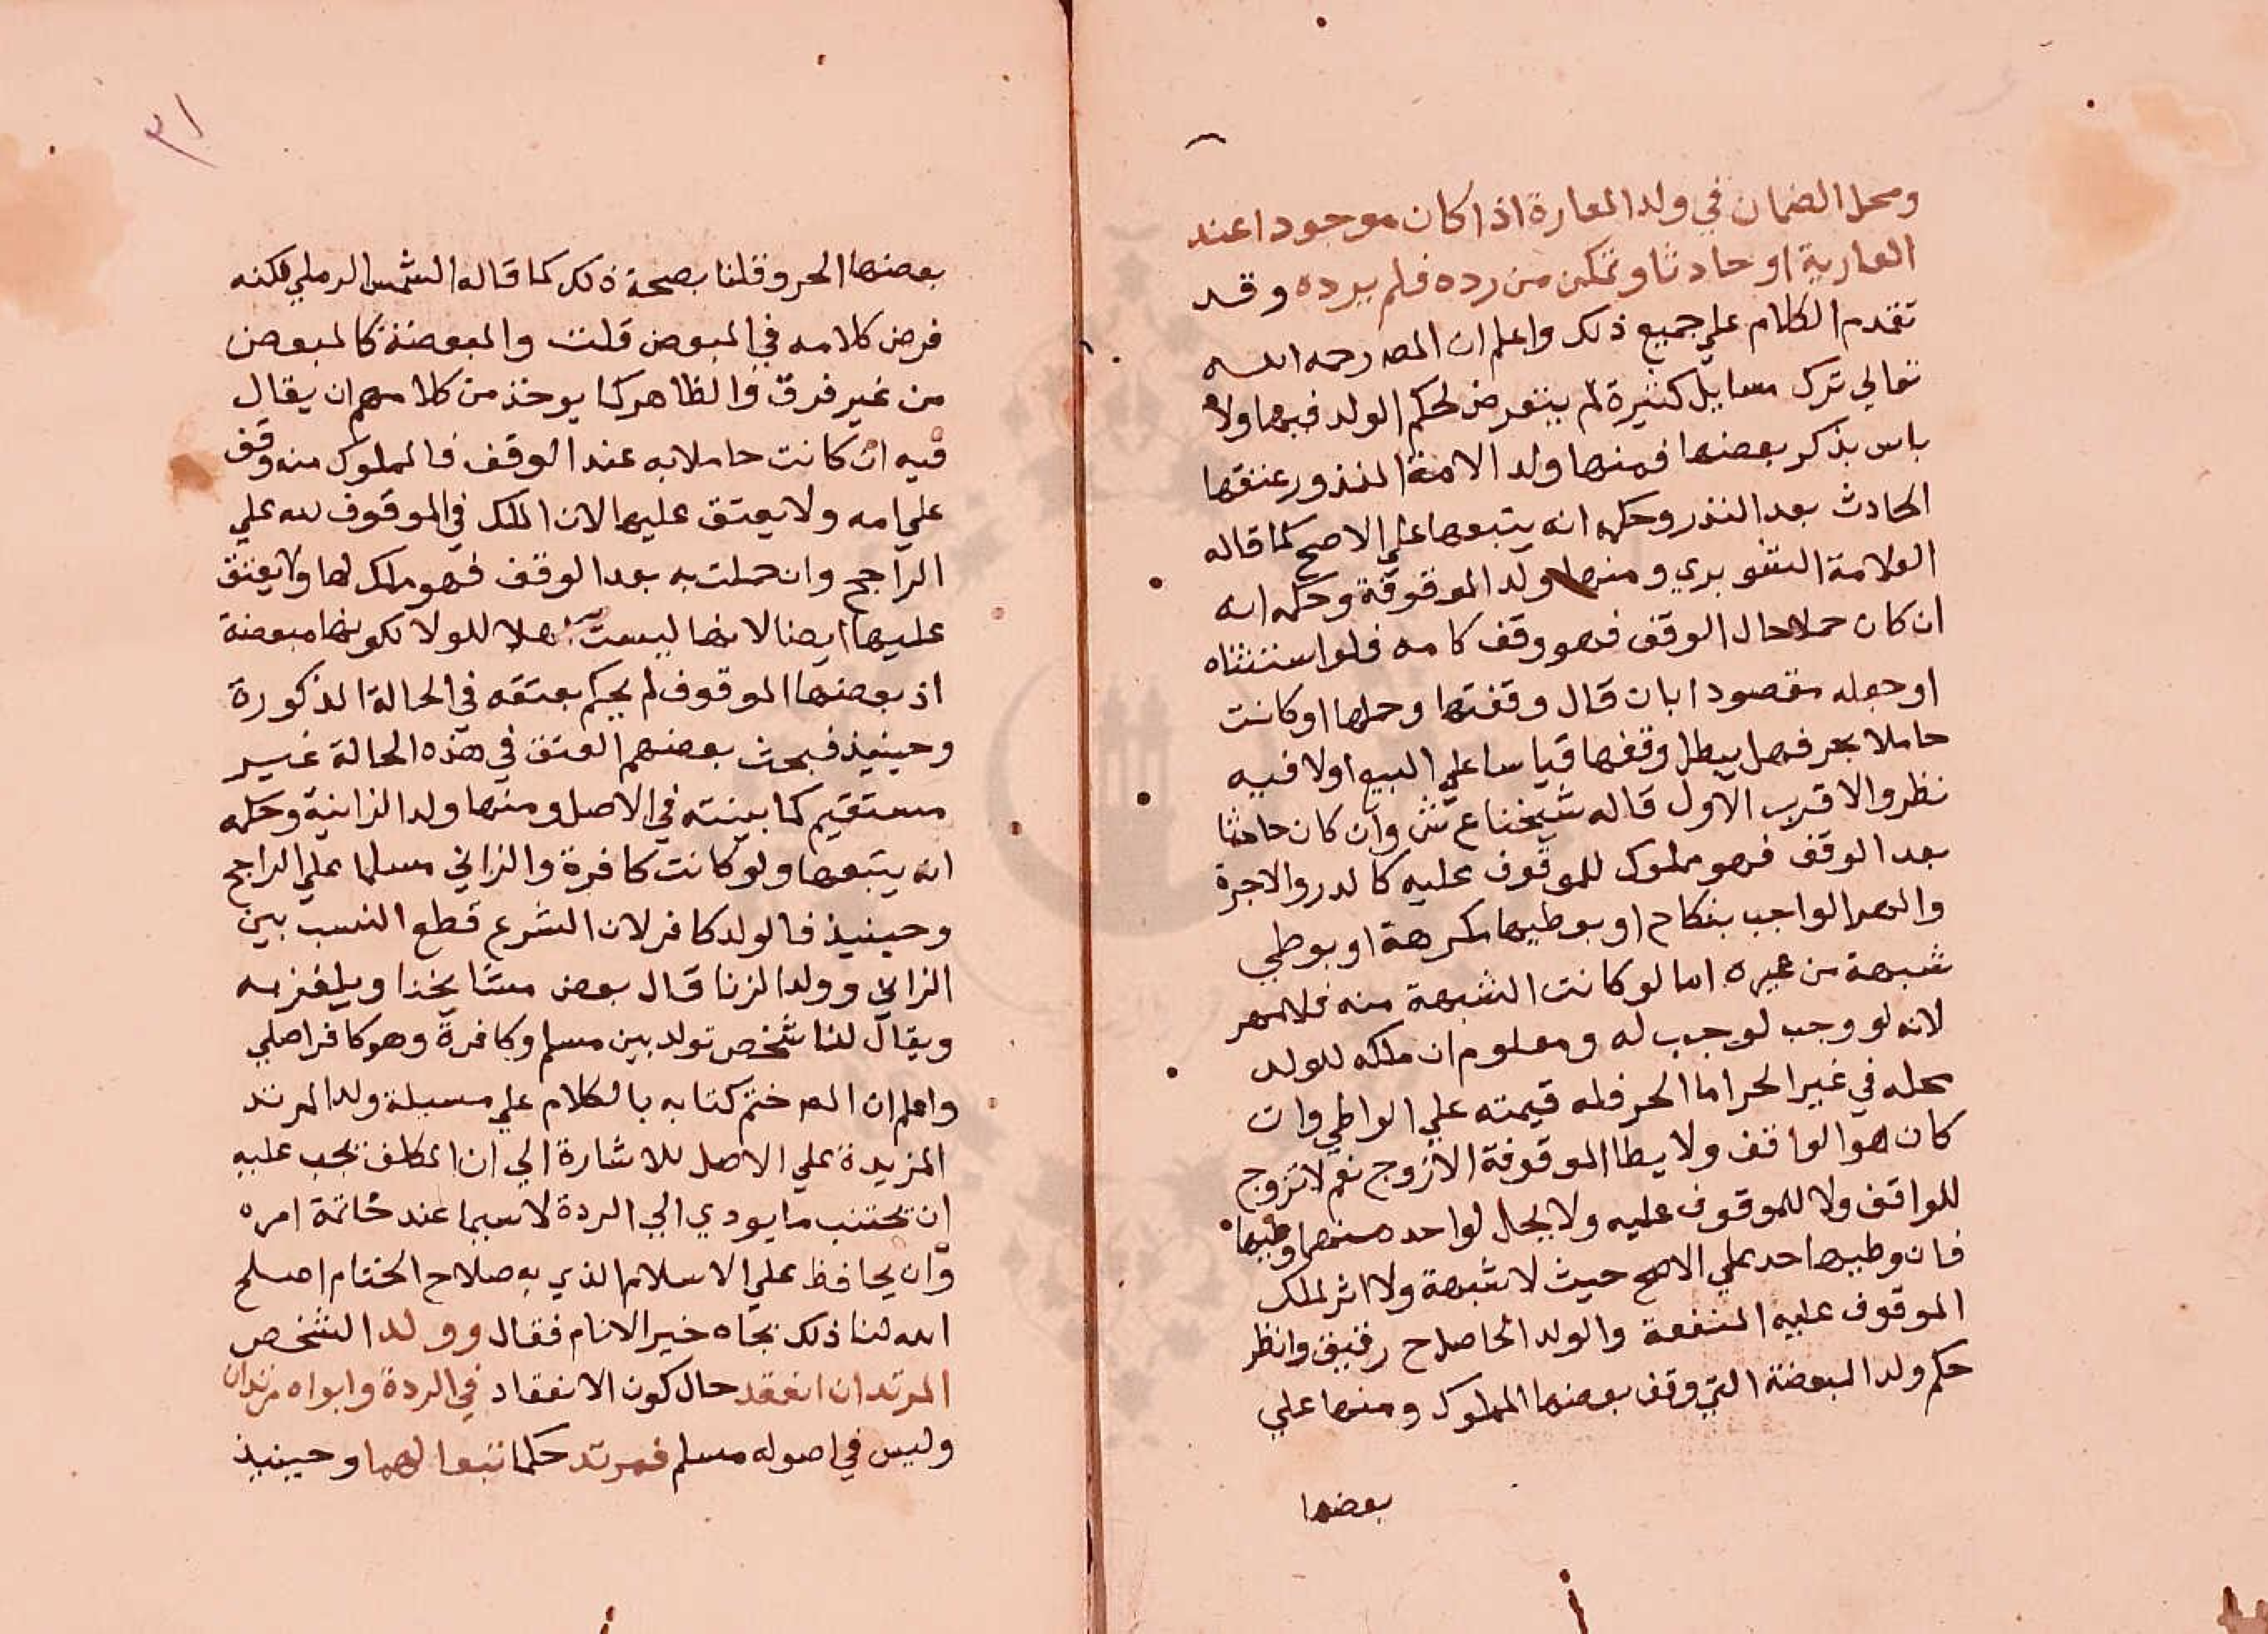 ومحل الضمان في ولد المعارة اذا كان موجودا عند
العارية او حادثا وتمكن من رده فلم يرده وقد
تقدم الكلام علي جميع ذلك واعلم ان المص رحمه الله
تعالي ترك مسايل كثيرة لم يتعرض لحكم الولد فيها ولا
باس بذكر بعضها فمنها ولد الامة المنذور عتقها
الحادث بعد النذر وحكمه انه يتبعها علي الاصح كما قاله
العلامة الشوبري ومنها ولد الموقوفة وحكمه انه
ان كان حملا حال الوقف فهو وقف كامه فلو استثناه
او جعله مقصودا بان قال وقفتها وحملها او كانت
حاملا بحر فهل يبطل وقفها قياسا علي البيع اولا فيه
نظر والاقرب الاول قاله شيخنا ع ش وان كان حادثا
بعد الوقف فهو مملوك للموقوف عليه كالدر والاجرة
والمهر الواجب بنكاح او بوطيها مكرهة او بوطي
شبهة من غيره اما لو كانت الشبهة منه فلا مهر
لانه لو وجب لوجب له ومعلوم ان ملكه للولد
محله في غير الحر اما الحر فله قيمته علي الواطي وان
كان هو الواقف ولا يطا الموقوفة الا زوج نعم لا تزوج
للواقف ولا للموقوف عليه ولا يحل لواحد منهما وطيها
فان وطيها احد علي الاصح حيث لا شبهة ولا اثر لملك
الموقوف عليه المنفعة والولد الحاصل ح رقيق وانظر
حكم ولد المبعضة التي وقف بعضها المملوك ومنها علي
بعضها
٣١
بعضها الحر وقلنا بصحة ذلك كما قاله الشمس الرملي لكنه
فرض كلامه في المبعض قلت والمبعضة كالمبعض
من غير فرق والظاهر كما يوخذ من كلامهم ان يقال
فيه ان كانت حاملا به عند الوقف فالمملوك منه وقف
علي امه ولا يعتق عليها لان الملك في الموقوف لله علي
الراجح وان حملت به بعد الوقف فهو ملك لها ولا يعتق
عليها ايضا لانها ليست اهلا للولا لكونها مبعضة
اذ بعضها الموقوف لم يحكم بعتقه في الحالة المذكورة
وحينيذ فبحث بعضهم العتق في هذه الحالة غير
مستقيم كما بينته في الاصل ومنها ولد الزانية وحكمه
انه يتبعها ولو كانت كافرة والزاني مسلما علي الراجح
وحينيذ فالولد كافر لان الشرع قطع النسب بين
الزاني وولد الزنا قال بعض مشايخنا ويلغز به
ويقال لنا شخص تولد بين مسلم وكافرة وهو كافر اصلي
واعلم ان المص ختم كتابه بالكلام علي مسيلة ولد المرتد
المزيدة علي الاصل للاشارة الي ان المكلف يجب عليه
ان يجتنب ما يودي الي الردة لا سيما عند خاتمة امره
وان يحافظ علي الاسلام الذي به صلاح الختام اصلح
الله لنا ذلك بجاه خير الانام فقال وولد الشخص
المرتد ان انعقد حال كون الانعقاد في الردة وابواه مرتدان
وليس في اصوله مسلم فمرتد حكما تبعا لهما وحينيذ